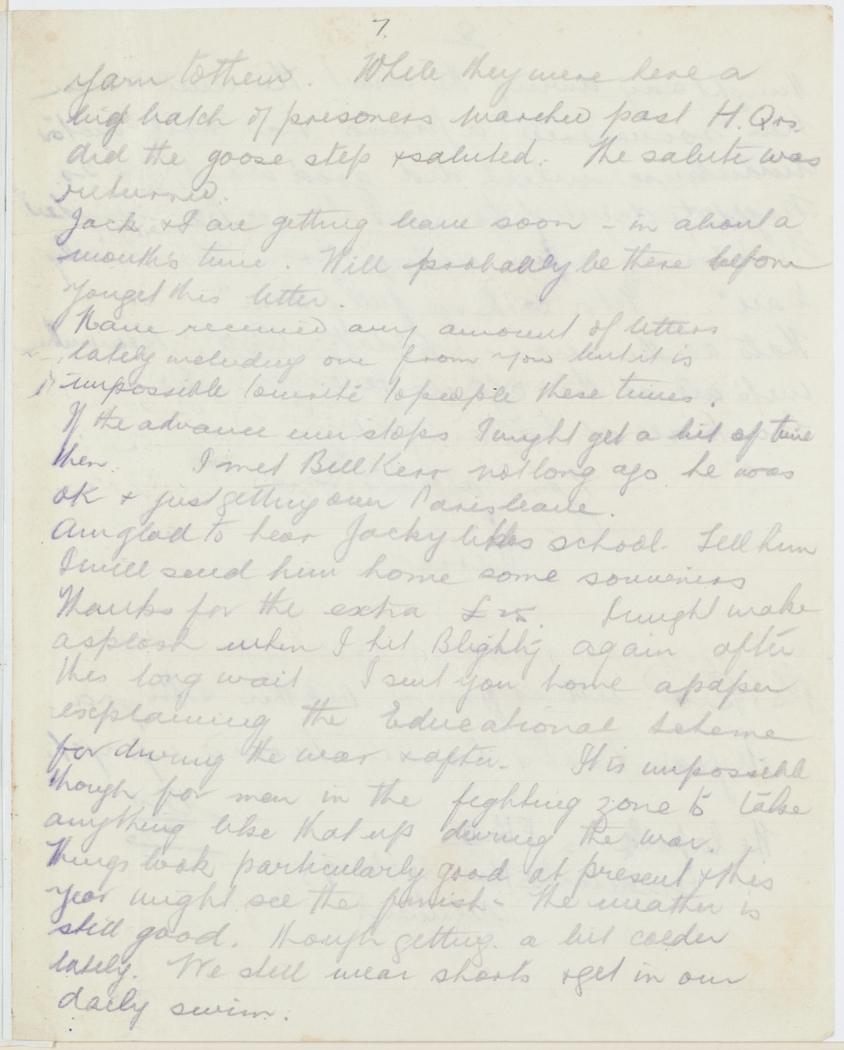 7.
yarn to them. While they were here a
big batch of prisoners marched past H.Qrs.
did the goose step & saluted. The salute was
returned.
Jack & I are getting leave soon - in about a
month's time. Will probably be there before
you get this letter.
Have received any amount of letters
lately including one from you but it is
impossible to write to people these times.
If the advance ever stops I might get a bit of time
then. I met Bill Kerr not long ago he was
OK & just getting over Paris leave.
Am glad to hear Jacky likes school. Tell him
I will send him home some souvenirs
Thanks for the extra £25. I might make
a splosh when I hit Blighty again after
this long wait I sent you home a paper
explaining the Educational Scheme
for during the war & after. It is impossible
though for men in the fighting zone to take
anything like that up during the war.
Things look particularly good at present & this
year might see the finish - The weather is
still good. though getting a bit colder
lately. We still wear shorts & get in our
daily swim.